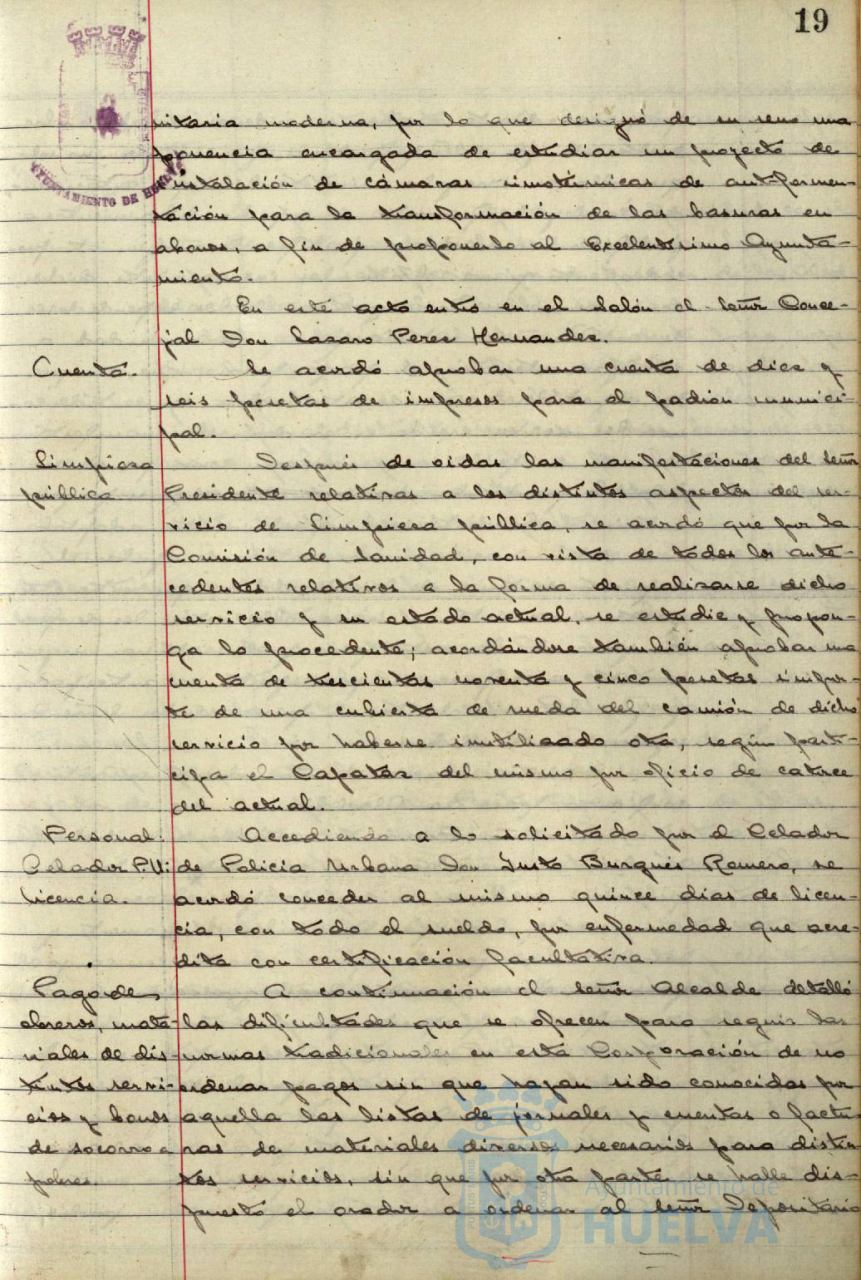 19
AYUNTAMIENTO DE HUELVA
nitaria moderna, por lo que designó de su seno una
ponencia encargada de estudiar un proyecto de
instalación de cámaras zimotérmicas de autofermen-
tación para la transformación de las basuras en
abonos, a fin de proponerlo al Excelentísimo Ayunta-
miento.
En este acto entró en el Salón el Señor Conce-
jal Don Lazaro Perez Hernandez.
Cuenta. Se acordó aprobar una cuenta de diez y
seis pesetas de impresos para el padrón munici-
pal.
Limpieza Después de oidas las manifestaciones del Señor
pública Presidente relativas a los distintos aspectos del ser-
vicio de Limpieza pública, se acordó que por la
Comisión de Sanidad, con vista de todos los ante-
cedentes relativos a la forma de realizarse dicho
servicio y su estado actual, se estudie y propon-
ga lo procedente; acordándose también aprobar una
cuenta de trescientas noventa y cinco pesetas impor-
te de una cubierta de rueda del camión de dicho
servicio por haberse inutilizado otra, según parti-
cipa el Capataz del mismo por oficio de catorce
del actual.
Personal: Accediendo a lo solicitado por el Celador
Celador P.U: de Policía Urbana Don Justo Burgués Romero, se
licencia. acordó conceder al mismo quince dias de licen-
cia, con todo el sueldo, por enfermedad que acre-
dita con certificación facultativa.
Pago de A continuación el Señor Alcalde detalló
obreros, mate- las dificultades que se ofrecen para seguir las
riales de dis- normas tradicionales en esta Corporación de no
tintos servi- ordenar pagos sin que hayan sido conocidas por
cios y bonos aquella las listas de jornales y cuentas o factu-
de socorro a ras de materiales diversos necesarios para distin-
pobres. tos servicios, sin que por otra parte se halle dis-
puesto el orador a ordenar al Señor Depositario
Ayuntamiento de
HUELVA